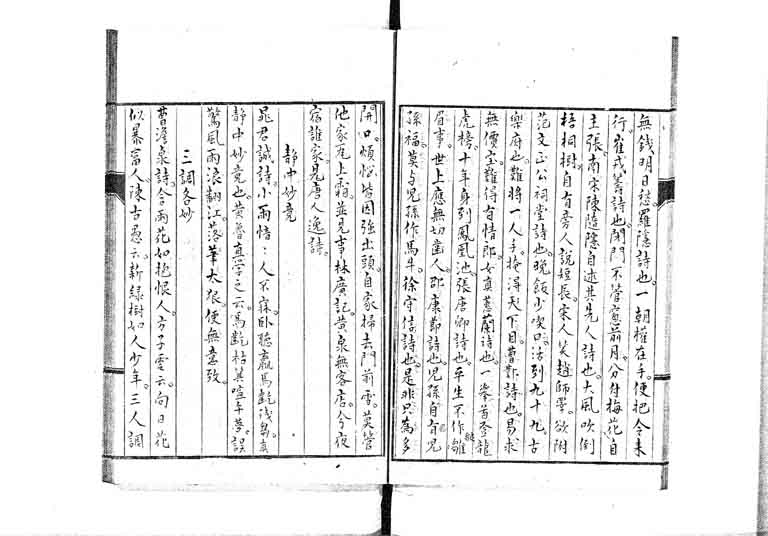 無錢明日愁羅隱詩也一朝權在手便把令來
行崔戎籌詩也閉門不管窗前月分付梅花自
主張南宋陳隨隱自述其先人詩也大風吹倒
梧桐樹自有旁人說短長宋人笑趙師睪欲附
范文正公祠堂詩也晚飯少喫口活到九十九古
樂府也難將一人手掩得天下目曹鄴詩也易求
無價寶難得有情郎女真蕙蘭詩也一舉首登龍
虎榜十年身到鳳凰池張唐卿詩也平生不作皺
眉事世上應無切齒人邵康節詩也兒孫自有兒
孫福莫與兒孫作馬牛徐守信詩也是非只為多
開口煩惱皆因強出頭自家掃去門前雪莫管
他家瓦上霜並見事林廣記黃泉無客店今夜
宿誰家見唐人逸詩
靜中妙竟
晁君誠詩小雨愔愔人不寐臥聽羸馬齕殘芻真
靜中妙竟也黃魯直學之云馬齕枯萁喧午夢誤
驚風雨浪翻江落筆太狠便無意致
三調各妙
曹澹泉詩今雨花如抱恨人方子雲云向日花
似暴富人陳古愚云新綠樹如人少年三人調